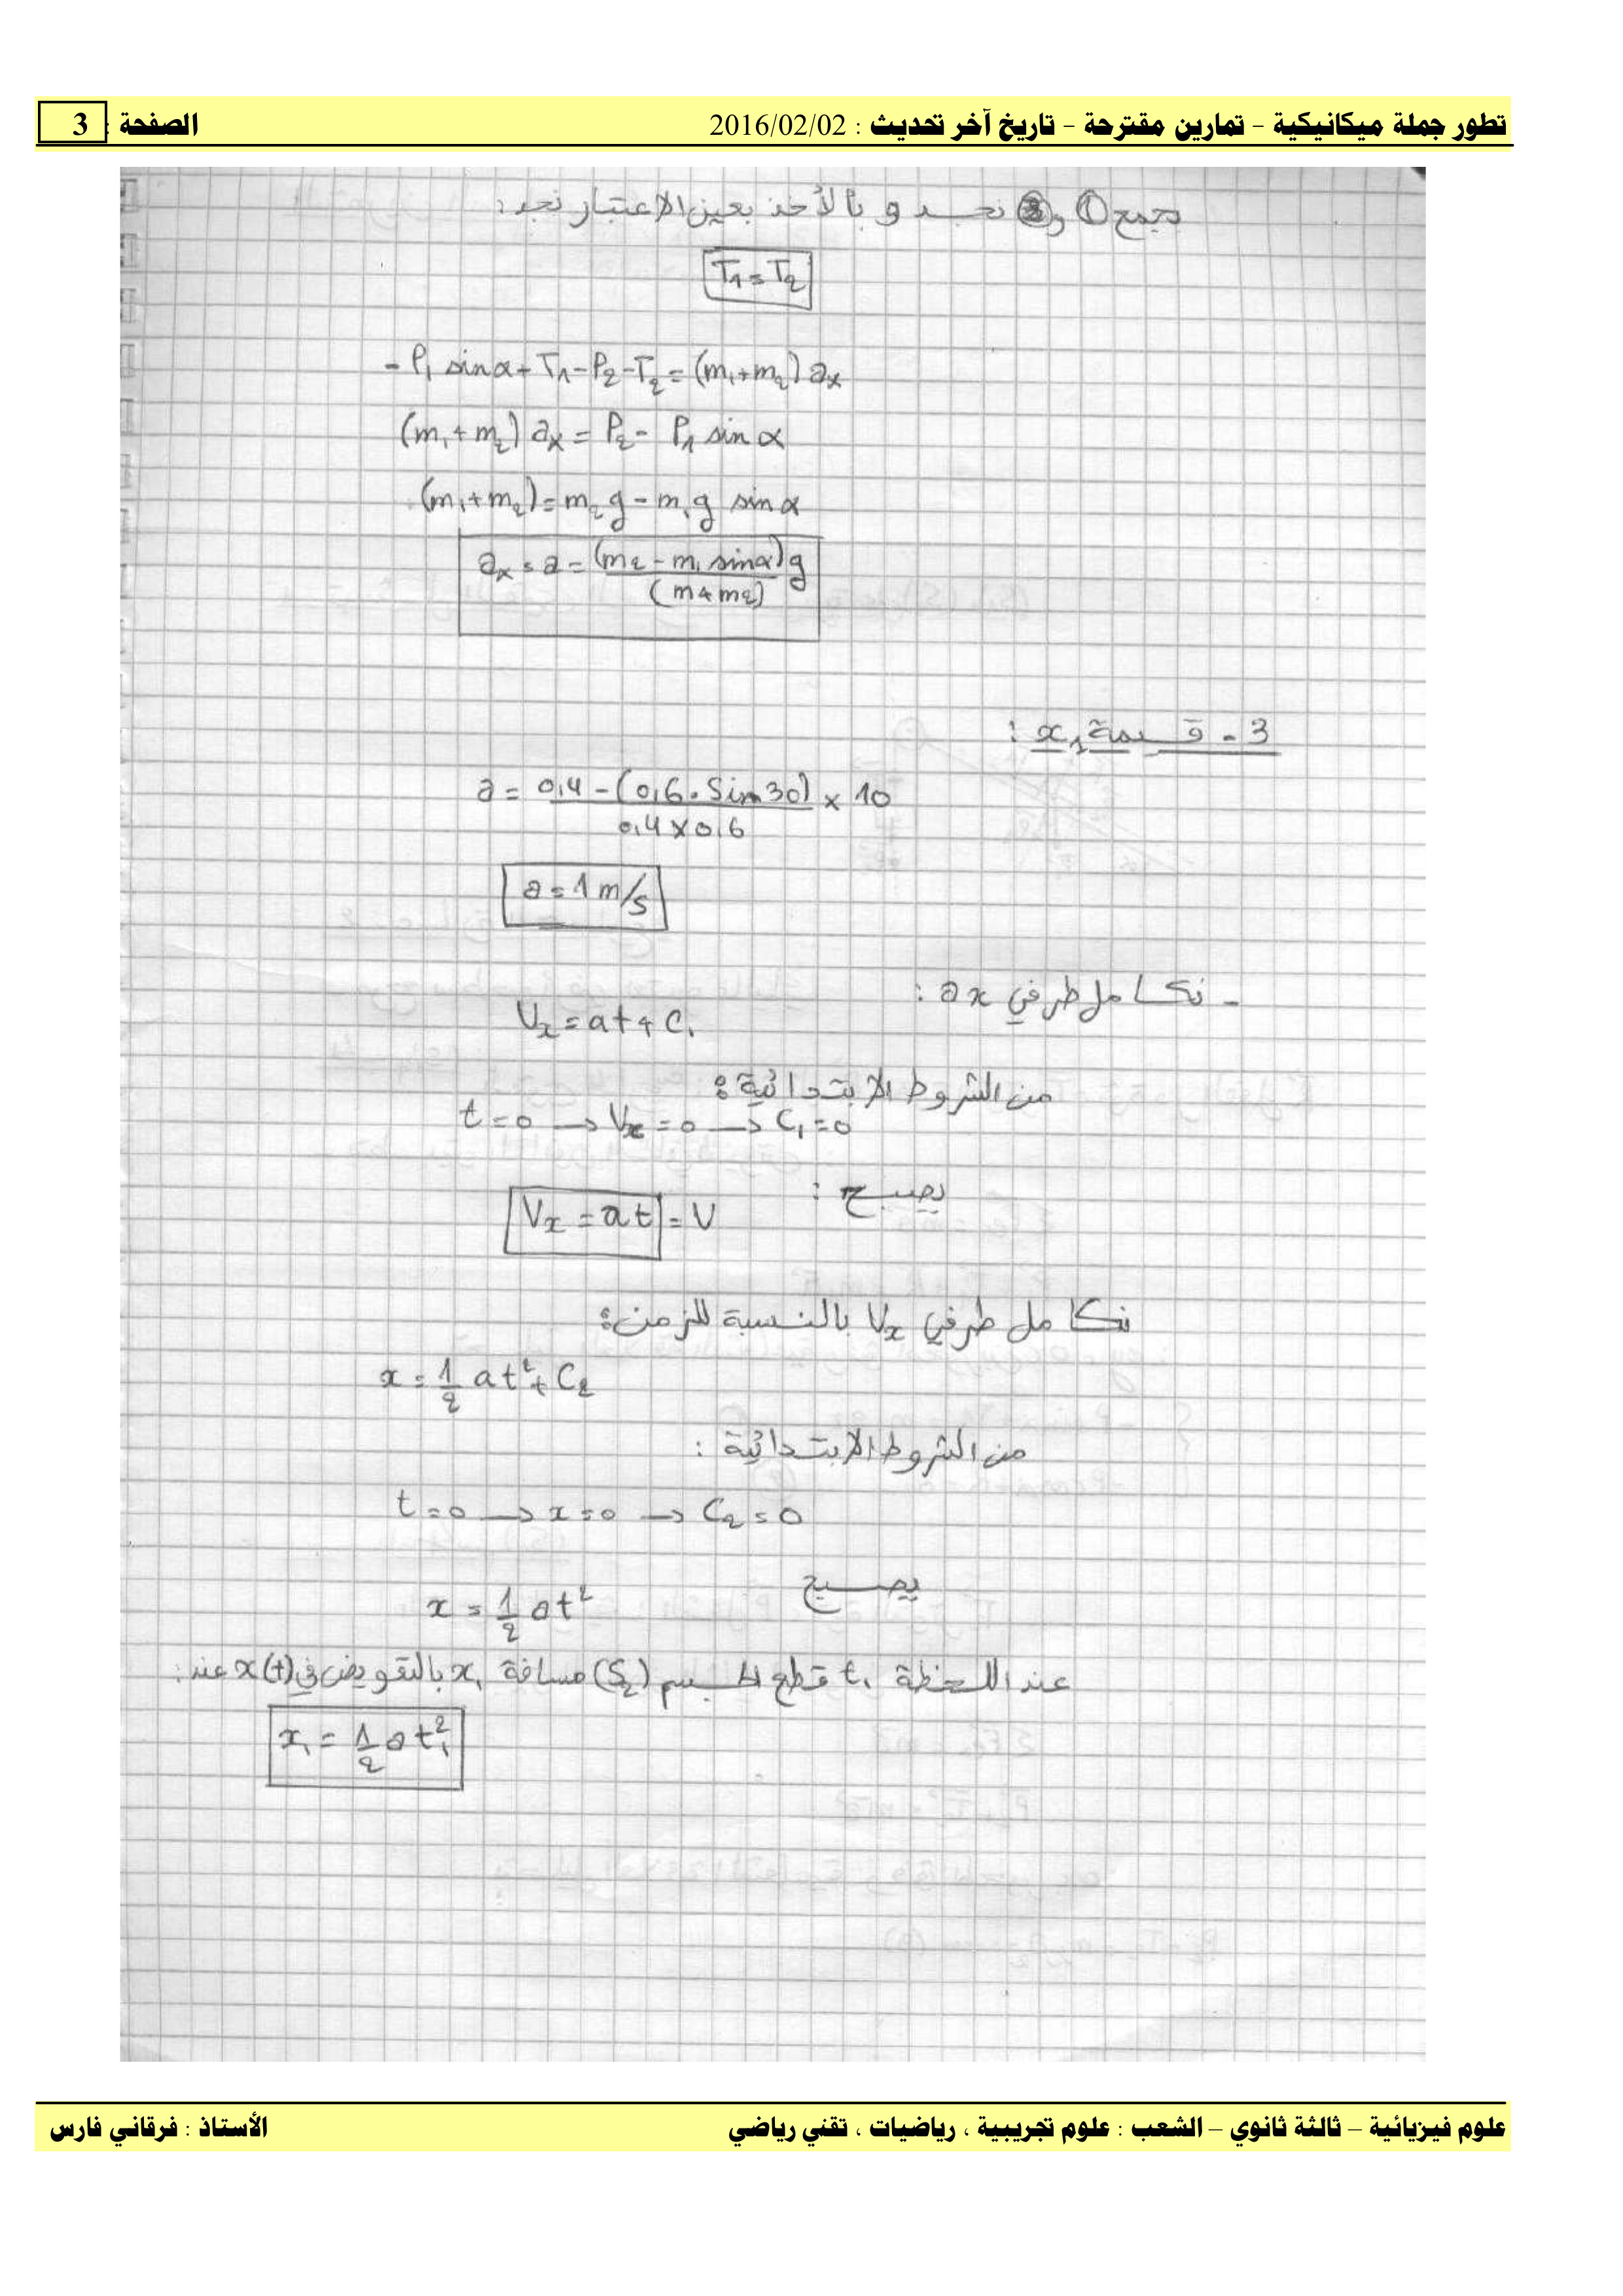 تطور جملة ميكانيكية - تمارين مقترحة - تاريخ آخر تحديث : 2016/02/02
الصفحة : 3
بجمع ① و ② نجد و بالأخذ بعين الاعتبار نجد:
T₁ = T₂
- P₁ sin α + T₁ - P₂ - T₂ = (m₁ + m₂) a_x
(m₁ + m₂) a_x = P₂ - P₁ sin α
(m₁ + m₂) = m₂ g - m₁ g sin α
a_x = a = (m₂ - m₁ sin α) g / (m + m₂)
3 - قيمة x₁ :
a = 0,4 - (0,6 . Sin 30) / 0,4 × 0,6 × 10
a = 1 m/s
- نكامل طرفي a x :
V_x = a t + C₁
من الشروط الابتدائية :
t = 0 → V_x = 0 → C₁ = 0
يصبح :
V_x = a t = V
نكامل طرفي V_x بالنسبة للزمن :
x = 1/2 a t² + C₂
من الشروط الابتدائية :
t = 0 → x = 0 → C₂ = 0
يصبح
x = 1/2 a t²
عند اللحظة t₁ قطع الجسم (S₂) مسافة x₁ بالتعويض في x(t) عند :
x₁ = 1/2 a t₁²
علوم فيزيائية – ثالثة ثانوي – الشعب : علوم تجريبية ، رياضيات ، تقني رياضي
الأستاذ : فرقاني فارس